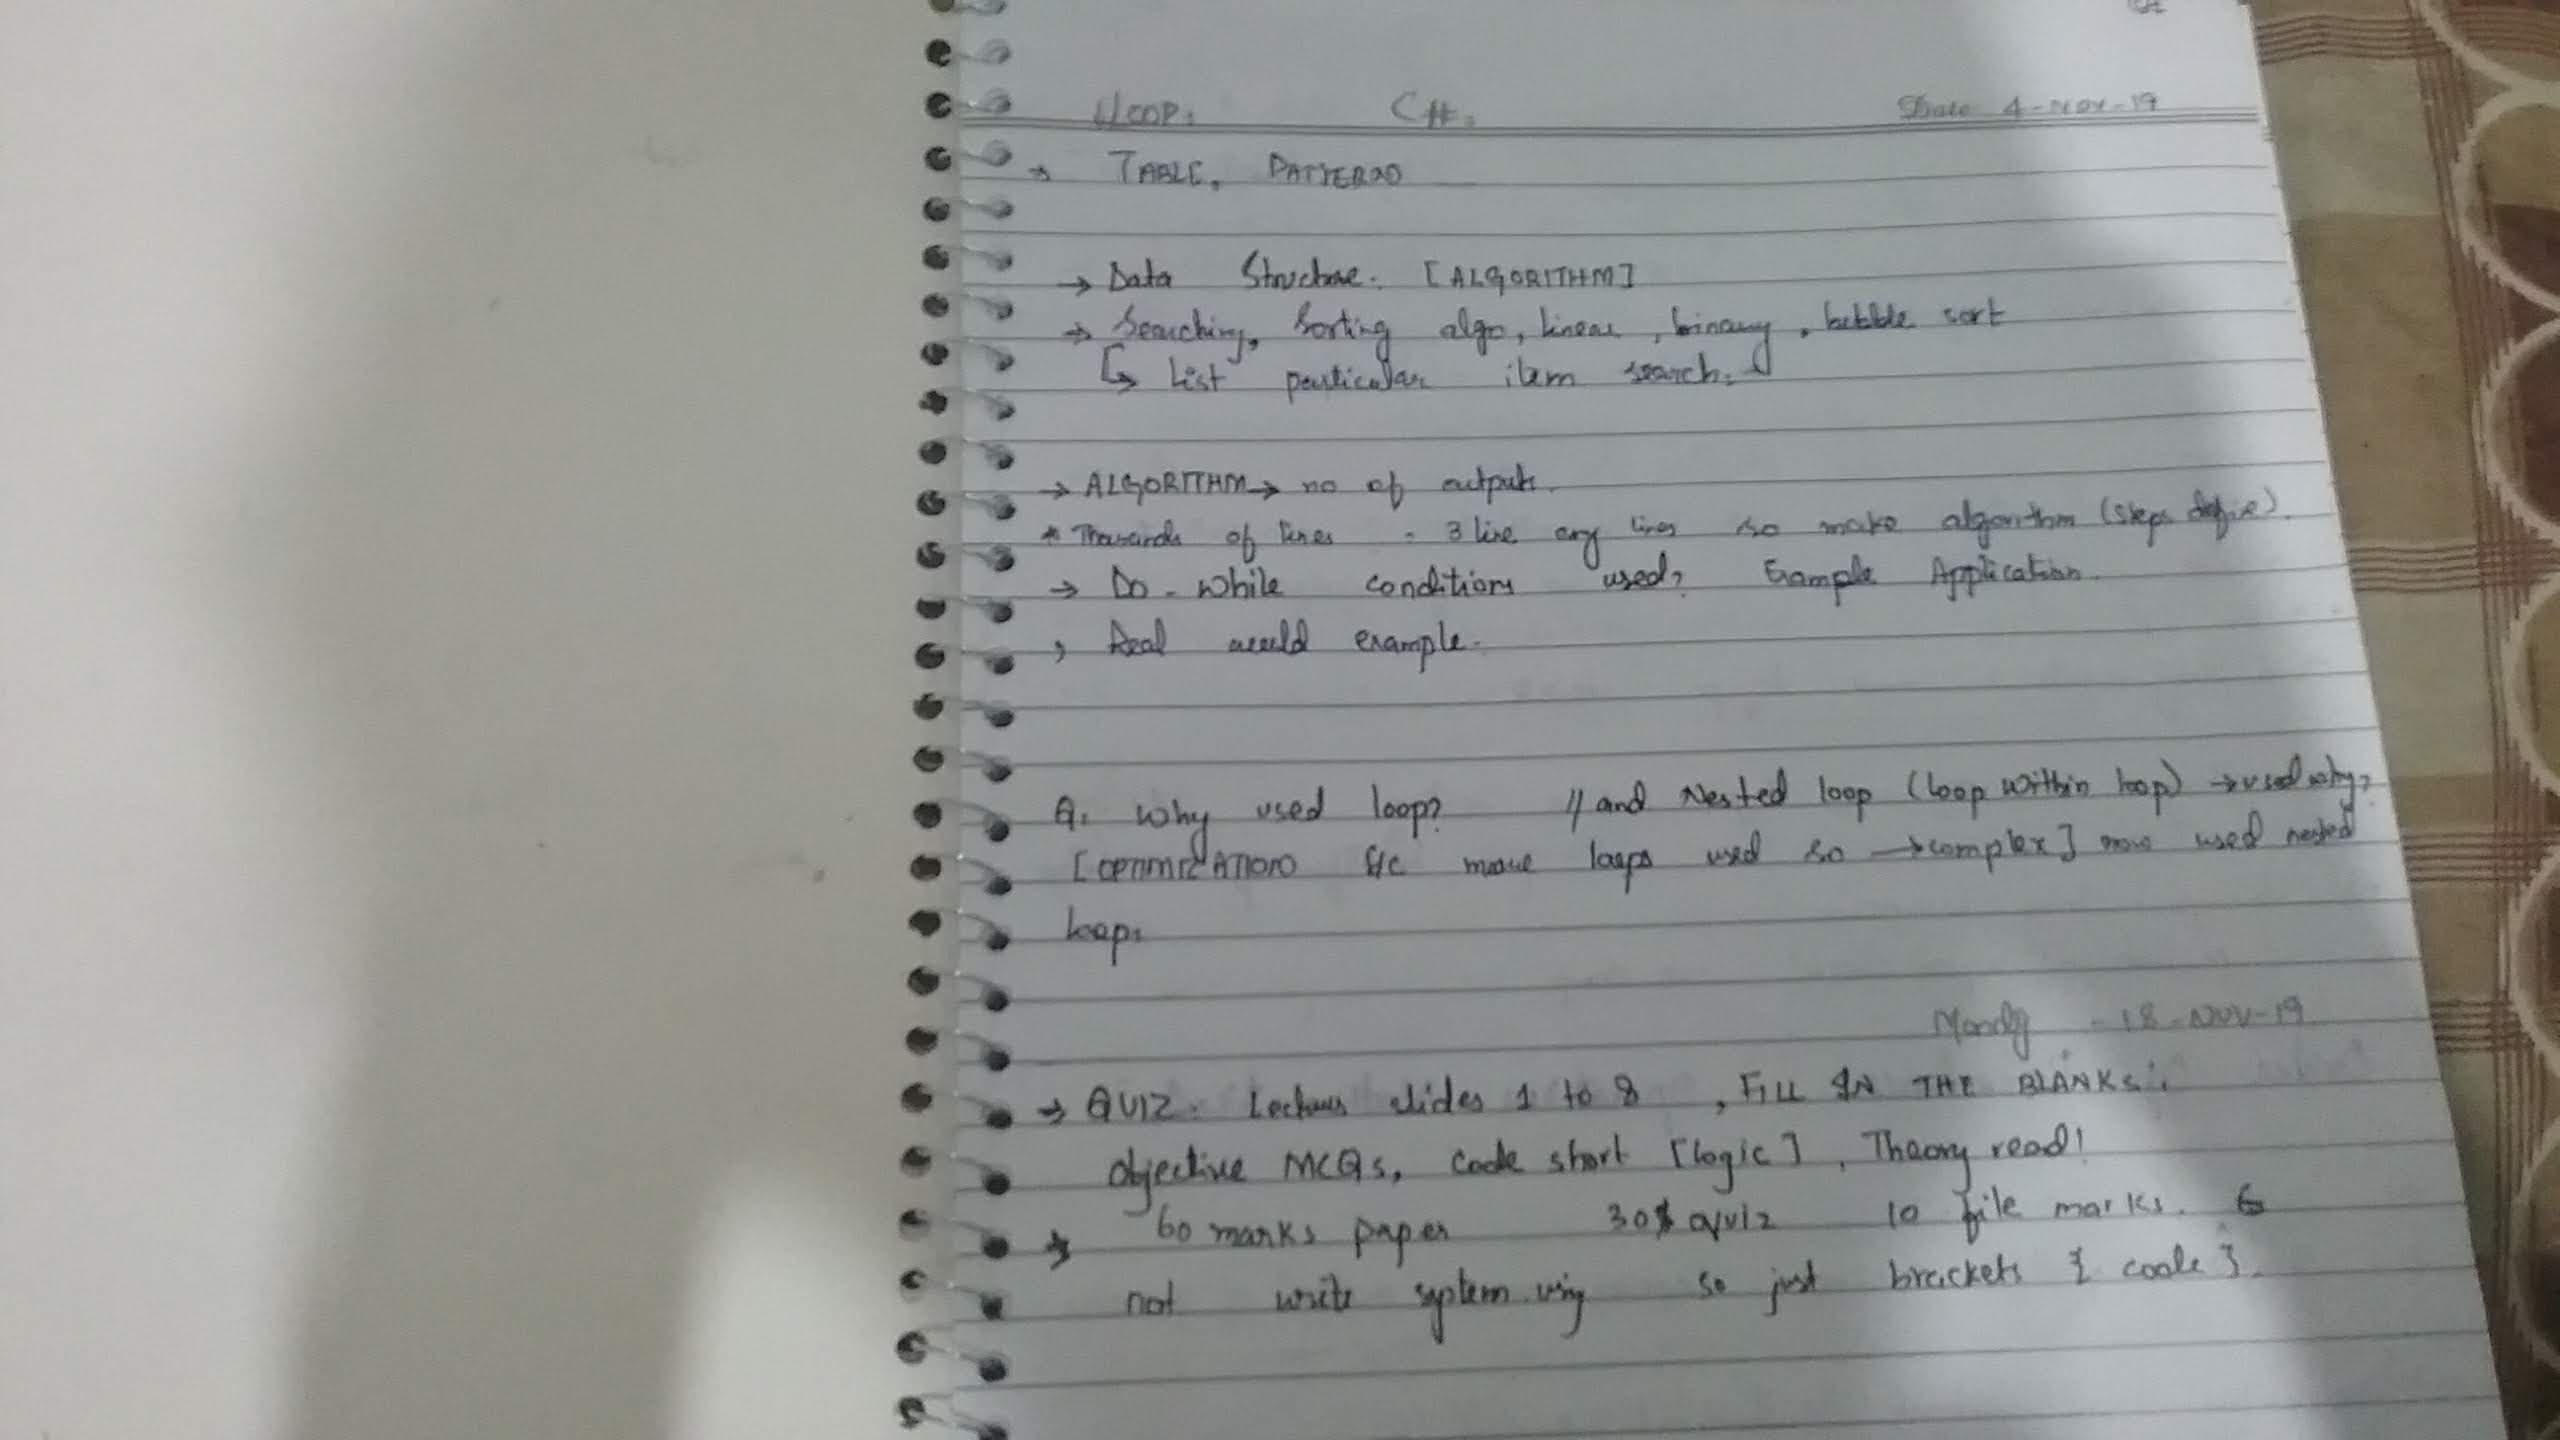 C#.
Date 4-Nov-19
→ TABLE, PATTERN
→ Data Structure. [ALGORITHM]
→ Searching, Sorting algo, linear, binary, bubble sort
↳ List particular item search.
→ ALGORITHM → no of outputs.
* Thousands of lines - 3 line any lines so make algorithm (steps define).
→ Do-while conditions used? Example Application.
Real world example.
Q. Why used loop? // and Nested loop (loop within loop) → used why?
[OPTIMIZATION b/c more loops used so → complex] more used nested
loop.
Monday - 18-NOV-19
→ QUIZ. Lectures slides 1 to 8, FILL IN THE BLANKS.
objective MCQs, code short [logic], Theory read!
→ 60 marks paper 30 quiz 10 file marks.
not write system.using so just brackets { code }.